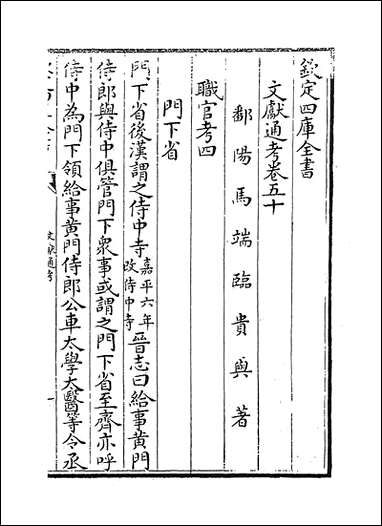 欽定四庫全書
文獻通考卷五十
鄱陽馬端臨貴與著
職官考四
門下省
門下省後漢謂之侍中寺嘉平六年改侍中寺晉志曰給事黃門
侍郎與侍中俱管門下衆事或謂之門下省至齊亦呼
侍中為門下領給事黃門侍郎公車太學大醫等令丞
文獻通考
一